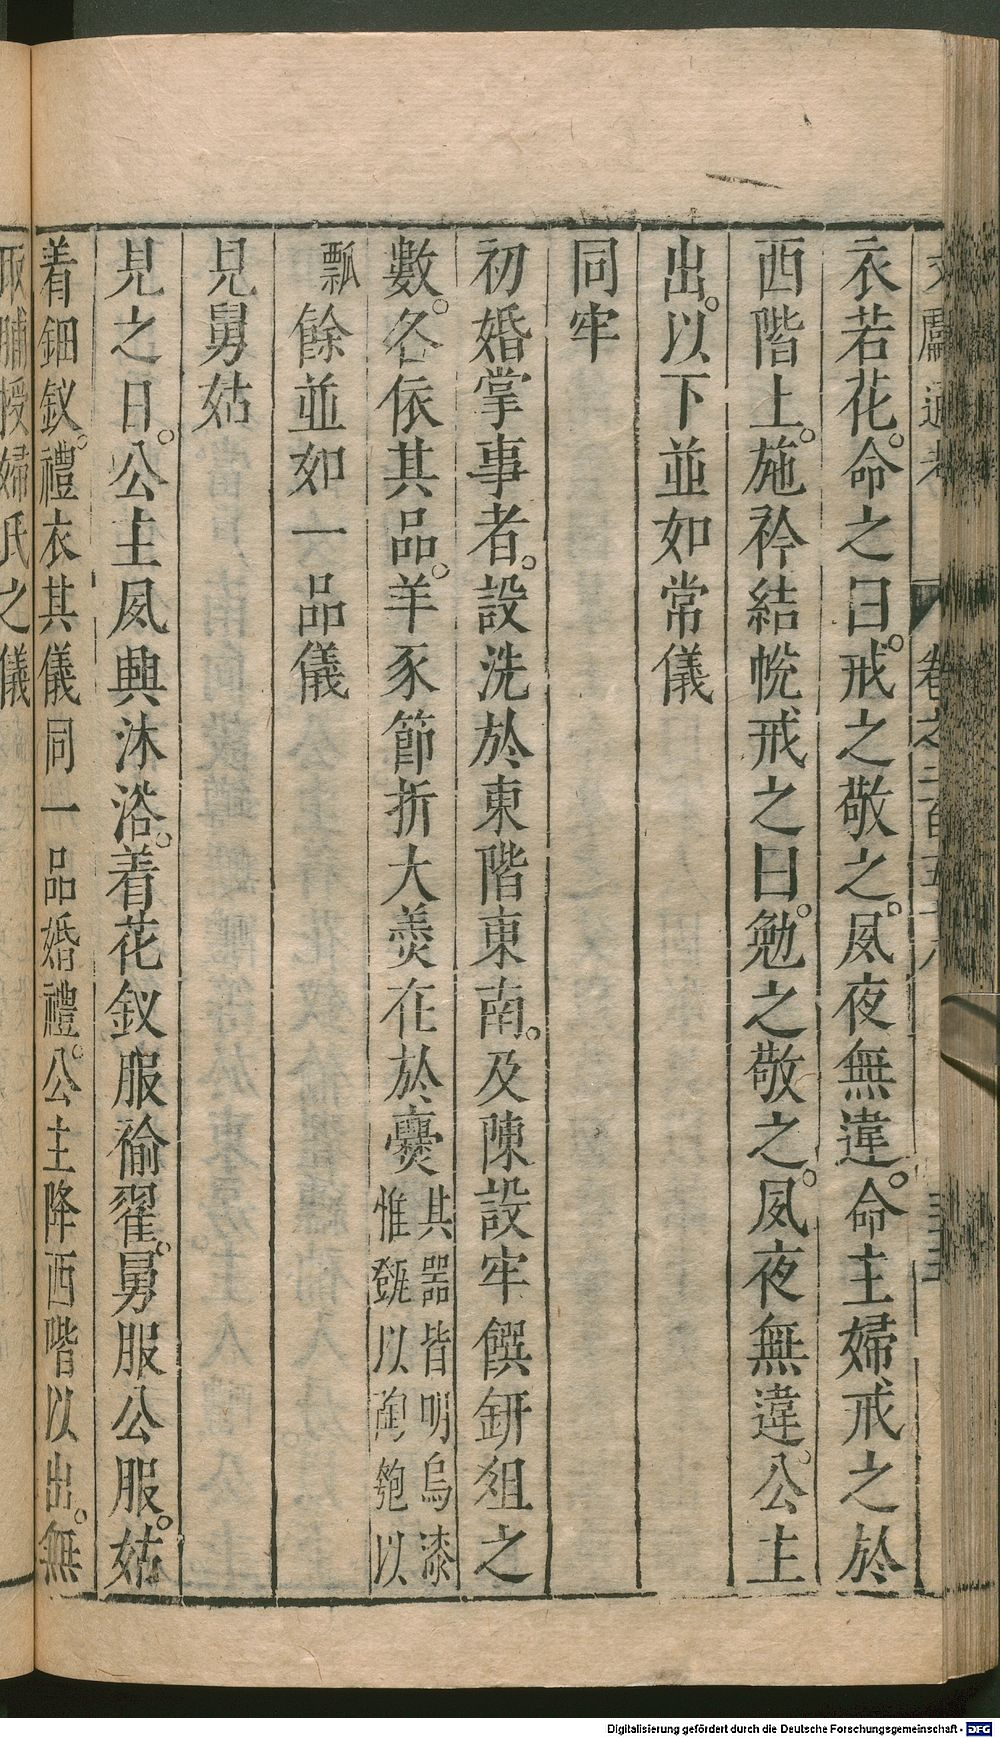 文獻通考 卷之二百五十八
衣若花。命之曰。戒之敬之。夙夜無違。命主婦戒之於
西階上。施衿結帨戒之曰。勉之敬之。夙夜無違。公主
出。以下並如常儀
同牢
初婚掌事者。設洗於東階東南。及陳設牢饌鈃俎之
數。各依其品。羊豕節折大羹在於爨其器皆明烏漆惟㽅以陶匏以
瓢餘並如一品儀
見舅姑
見之日。公主夙興沐浴。着花釵服褕翟。舅服公服。姑
着鈿釵。禮衣其儀同一品婚禮。公主降西階以出。無
取脯授婦氏之儀
Digitalisierung gefördert durch die Deutsche Forschungsgemeinschaft - DFG